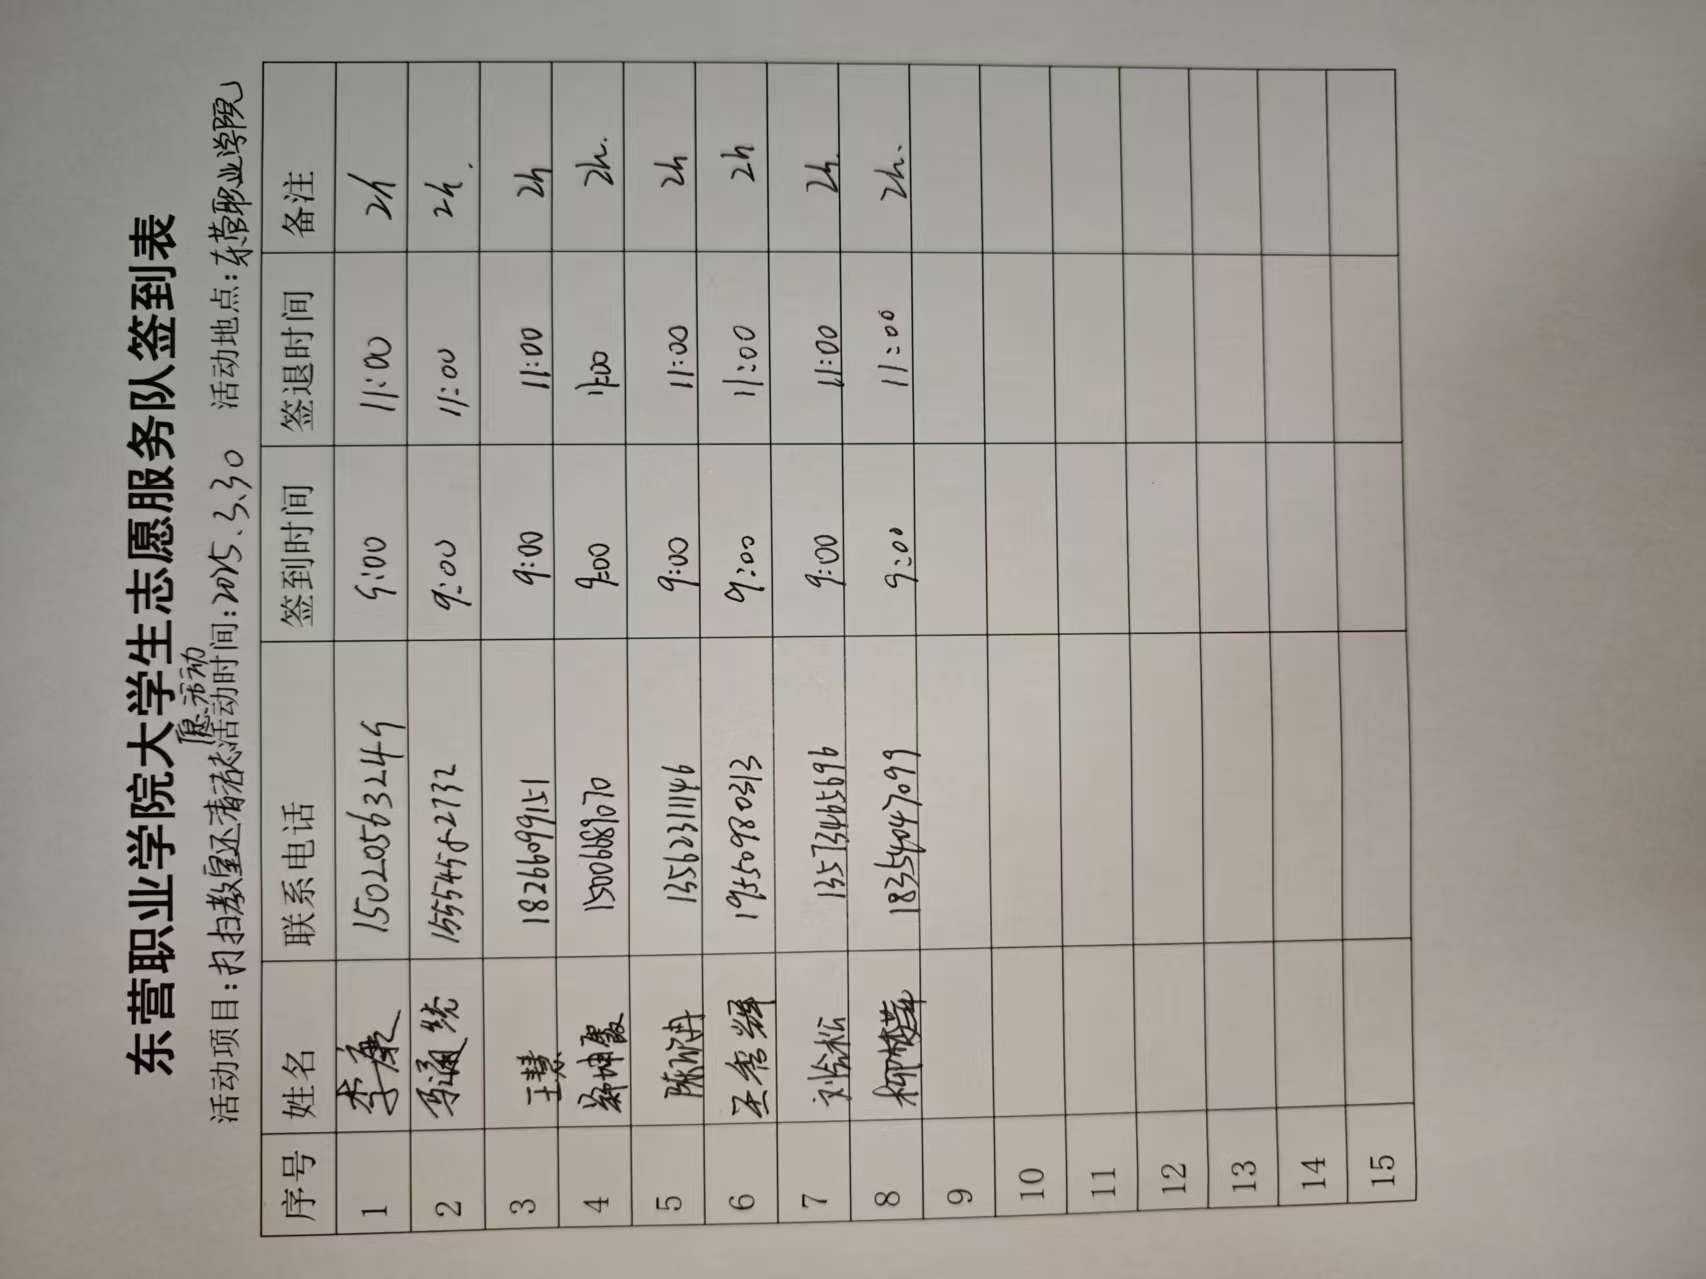 东营职业学院大学生志愿服务队签到表
愿活动
活动项目:打扫教室还清者志活动时间:2025.3.30 活动地点:东营职业学院
序号 姓名 联系电话 签到时间 签退时间 备注
1 李康 15020563249 9:00 11:00 2h
2 马通 9:00 11:00 2h.
3 王慧 18266099151 9:00 11:00 2h
4 15006689070 9:00 11:00 2h.
5 13562311146 9:00 11:00 2h
6 王秀辉 19550980313 9:00 11:00 2h
7 刘会松 13573465696 9:00 11:00 2h.
8 18354047099 9:00 11:00 2h.
9
10
11
12
13
14
15